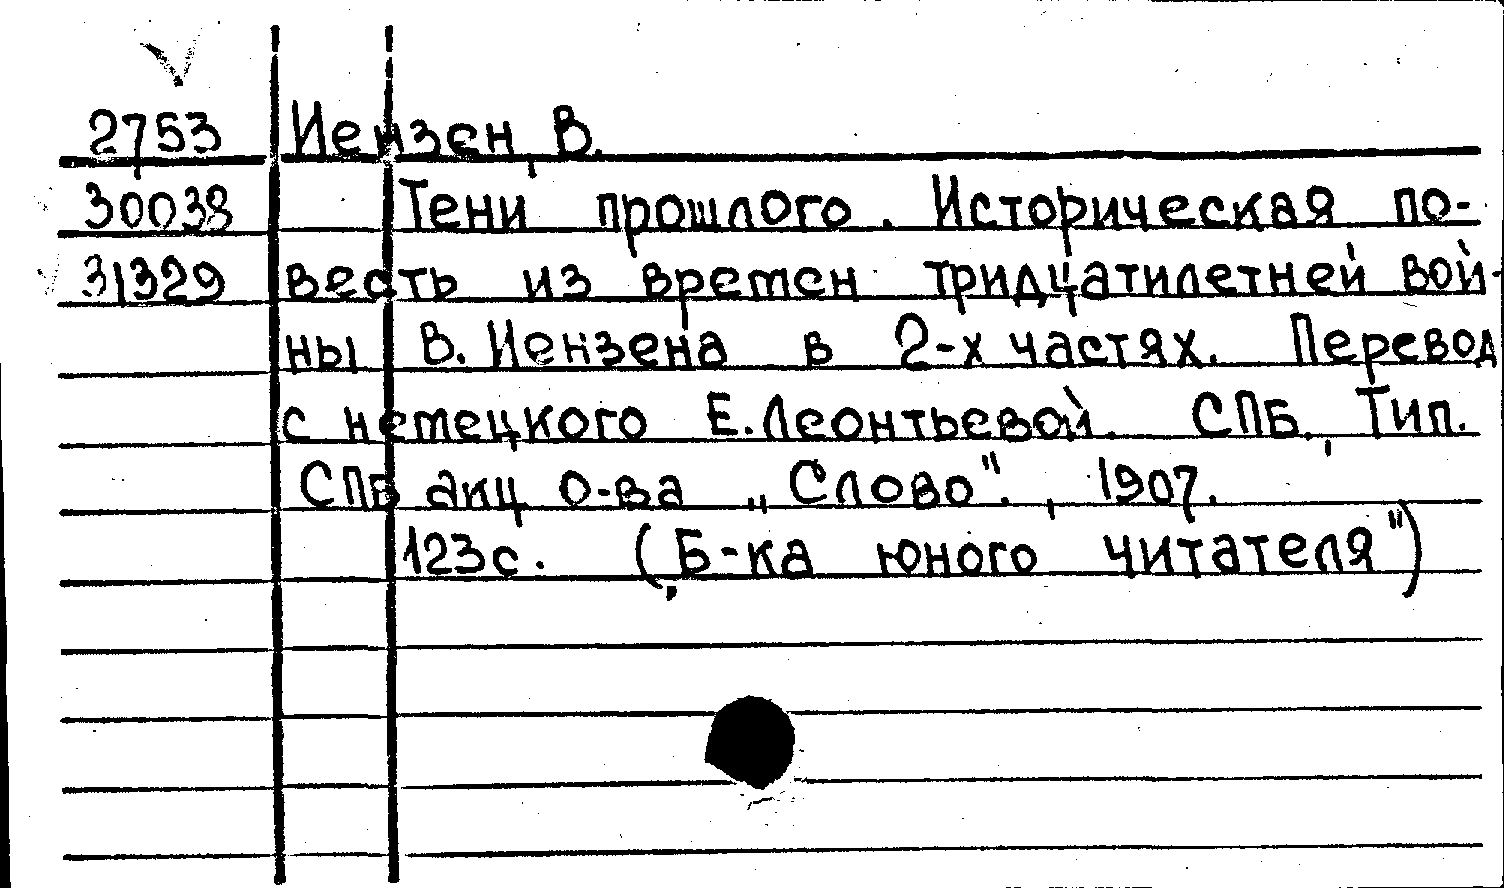 2753 Иензен, В.
30038 Тени прошлого. Историческая по-
31329 весть из времен тридцатилетней вой-
ны В. Иензена в 2-х частях. Перевод
с немецкого Е. Леонтьевой. СПБ., Тип.
СПБ акц о-ва „Слово"., 1907.
123с. („Б-ка юного читателя")